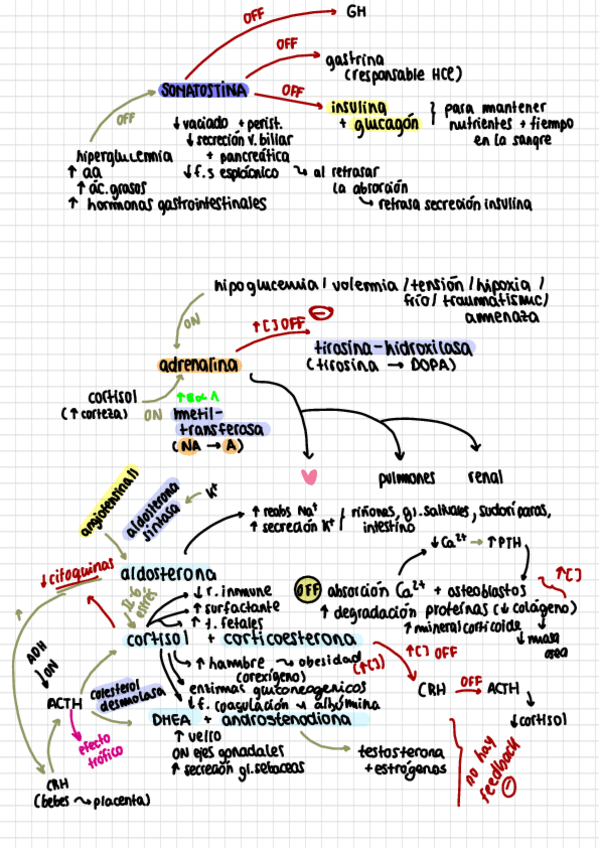 OFF
GH
OFF
gastrina
(responsable HCl)
SOMATOSTINA
OFF
insulina
+ glucagón
para mantener
nutrientes + tiempo
en la sangre
OFF
↓ vaciado + perist.
↓ secreción v. biliar
+ pancreática
↓ f. s esplácnico ↝ al retrasar
la absorción
↳ retrasa secreción insulina
hiperglucemia
↑ aa
↑ ác. grasos
↑ hormonas gastrointestinales
hipoglucemia / volemia / tensión / hipoxia /
frío / traumatismo /
amenaza
ON
↑ [ ] OFF ⊖
adrenalina
tirosina-hidroxilasa
(tirosina → DOPA)
cortisol
(↑ corteza)
ON
metil-
transferasa
(NA → A)
pulmones
renal
angiotensina II
aldosterona
sintasa
K⁺
↑ reabs Na⁺
↑ secreción K⁺
/ riñones, gl. salivales, sudoríparas,
intestino
↓ Ca²⁺ → ↑ PTH
↓ citoquinas
aldosterona
IL-6
estrés
↓ r. inmune
↑ surfactante
↑ f. fetales
OFF absorción Ca²⁺ + osteoblastos
↑ [ ]
↑ degradación proteínas (↓ colágeno)
↑ mineralcorticoide
↓ masa
osea
cortisol + corticoesterona
↑ [ ] OFF
ADH
ON
↑ hambre ↝ obesidad
(orexígeno)
(↑ [ ])
enzimas gluconeogenicos
↓ f. coagulación ↝ albúmina
CRH
OFF
ACTH
↓ cortisol
ACTH
colesterol
desmolasa
DHEA + androstenodiona
efecto
trófico
↑ vello
ON ejes gonadales
↑ secreción gl. sebaceas
testosterona
+ estrógenos
no hay
feedback
⊖
CRH
(bebes ↝ placenta)